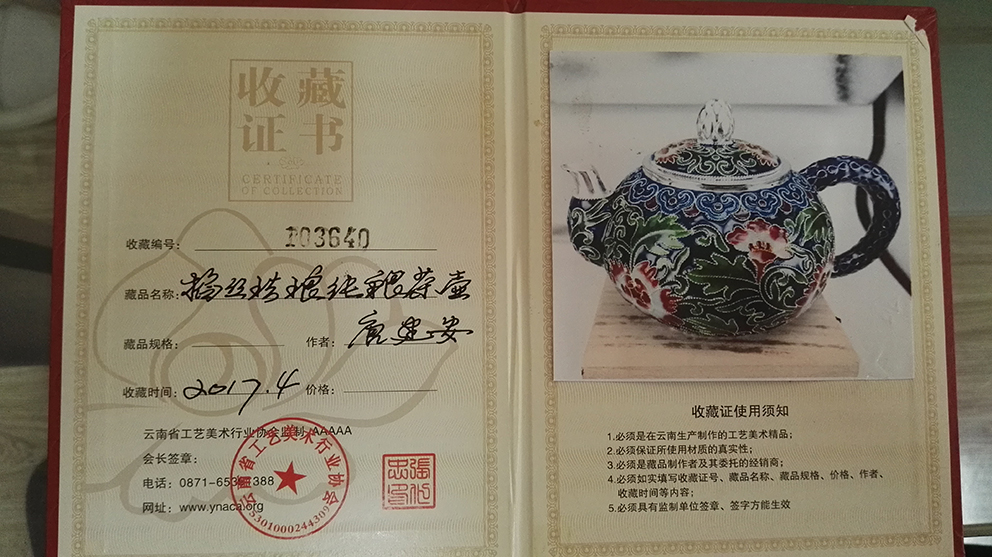 收藏
证书
CERTIFICATE
OF COLLECTION
收藏编号： 203640
藏品名称：掐丝珐琅纯银茶壶
藏品规格： 作者：唐建安
收藏时间：2017.4 价格：
云南省工艺美术行业协会监制 AAAAA
会长签章：
电话：0871-653 388
网址：www.ynaca.org
云南省工艺美术行业协会
5301000244309
收藏证使用须知
1.必须是在云南生产制作的工艺美术精品；
2.必须保证所使用材质的真实性；
3.必须是藏品制作者及其委托的经销商；
4.必须如实填写收藏证号、藏品名称、藏品规格、价格、作者、
收藏时间等内容；
5.必须具有监制单位签章、签字方能生效